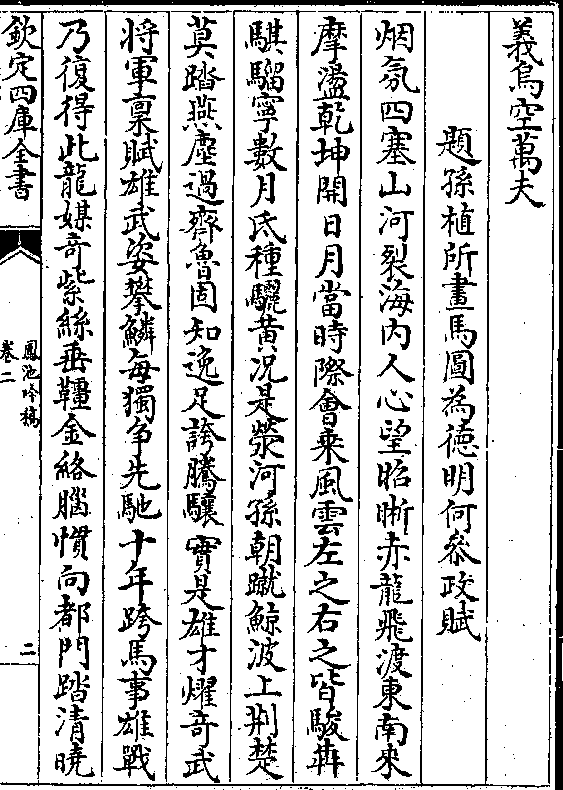 義烏空萬夫
題孫植所畫馬圖為德明何叅政賦
烟氛四塞山河裂海内人心望昭晣赤龍飛渡東南來
摩盪乾坤開日月當時際會乘風雲左之右之皆駿犇
騏騮寧數月氐種驪黄况是滎河孫朝蹴鯨波上荆楚
莫踏燕塵過齊魯固知逸足誇騰驤實是雄才燿奇武
将軍稟賦雄武姿攀鱗每獨争先馳十年跨馬事雄戰
乃復得此龍媒奇紫絲垂韁金絡腦慣向都門踏清曉
欽定四庫全書
鳳池吟稿
卷二
二